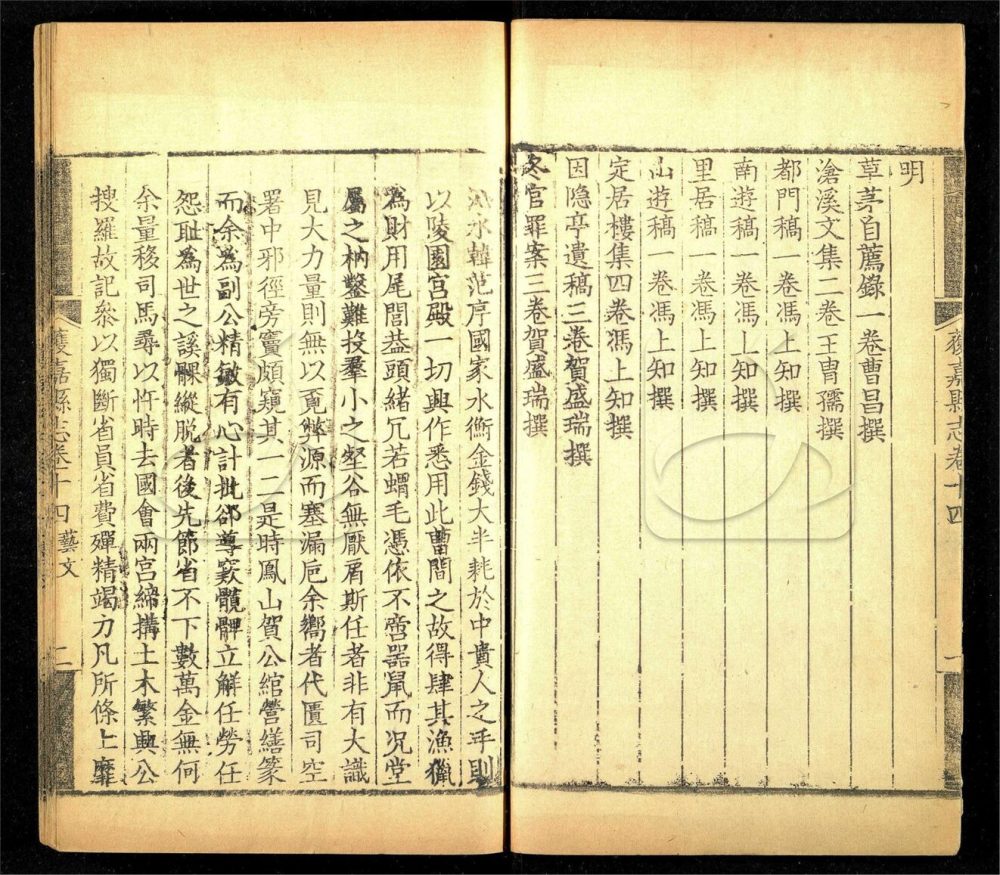 明
草茅自薦錄一卷曹昌撰
滄溪文集二卷王胄孺撰
都門稿一卷馮上知撰
南遊稿一卷馮上知撰
里居稿一卷馮上知撰
山遊稿一卷馮上知撰
定居樓集四卷馮上知撰
因隐亭遺稿三卷賀盛瑞撰
冬官罪案三卷賀盛瑞撰
獲嘉縣志卷十四
一
沁水韓范序國家水衡金錢大半耗於中貴人之手則
以陵園宫殿一切興作悉用此曹間之故得肆其漁獵
為財用尾閭葢頭緒冗若蝟毛憑依不啻器鼠而况堂
屬之枘鑿難投羣小之壑谷無厭肩斯任者非有大識
見大力量則無以覔弊源而塞漏巵余嚮者代匱司空
署中邪徑旁竇頗窺其一二是時鳳山賀公綰營繕篆
而余為副公精敏有心計批郤導窾髖髀立解任勞任
怨耻為世之謑髁縱脫者後先節省不下數萬金無何
余量移司馬尋以忤時去國會兩宫締搆土木繁興公
搜羅故記叅以獨斷省員省費殫精竭力凡所條上靡
獲嘉縣志卷十四 藝文
二